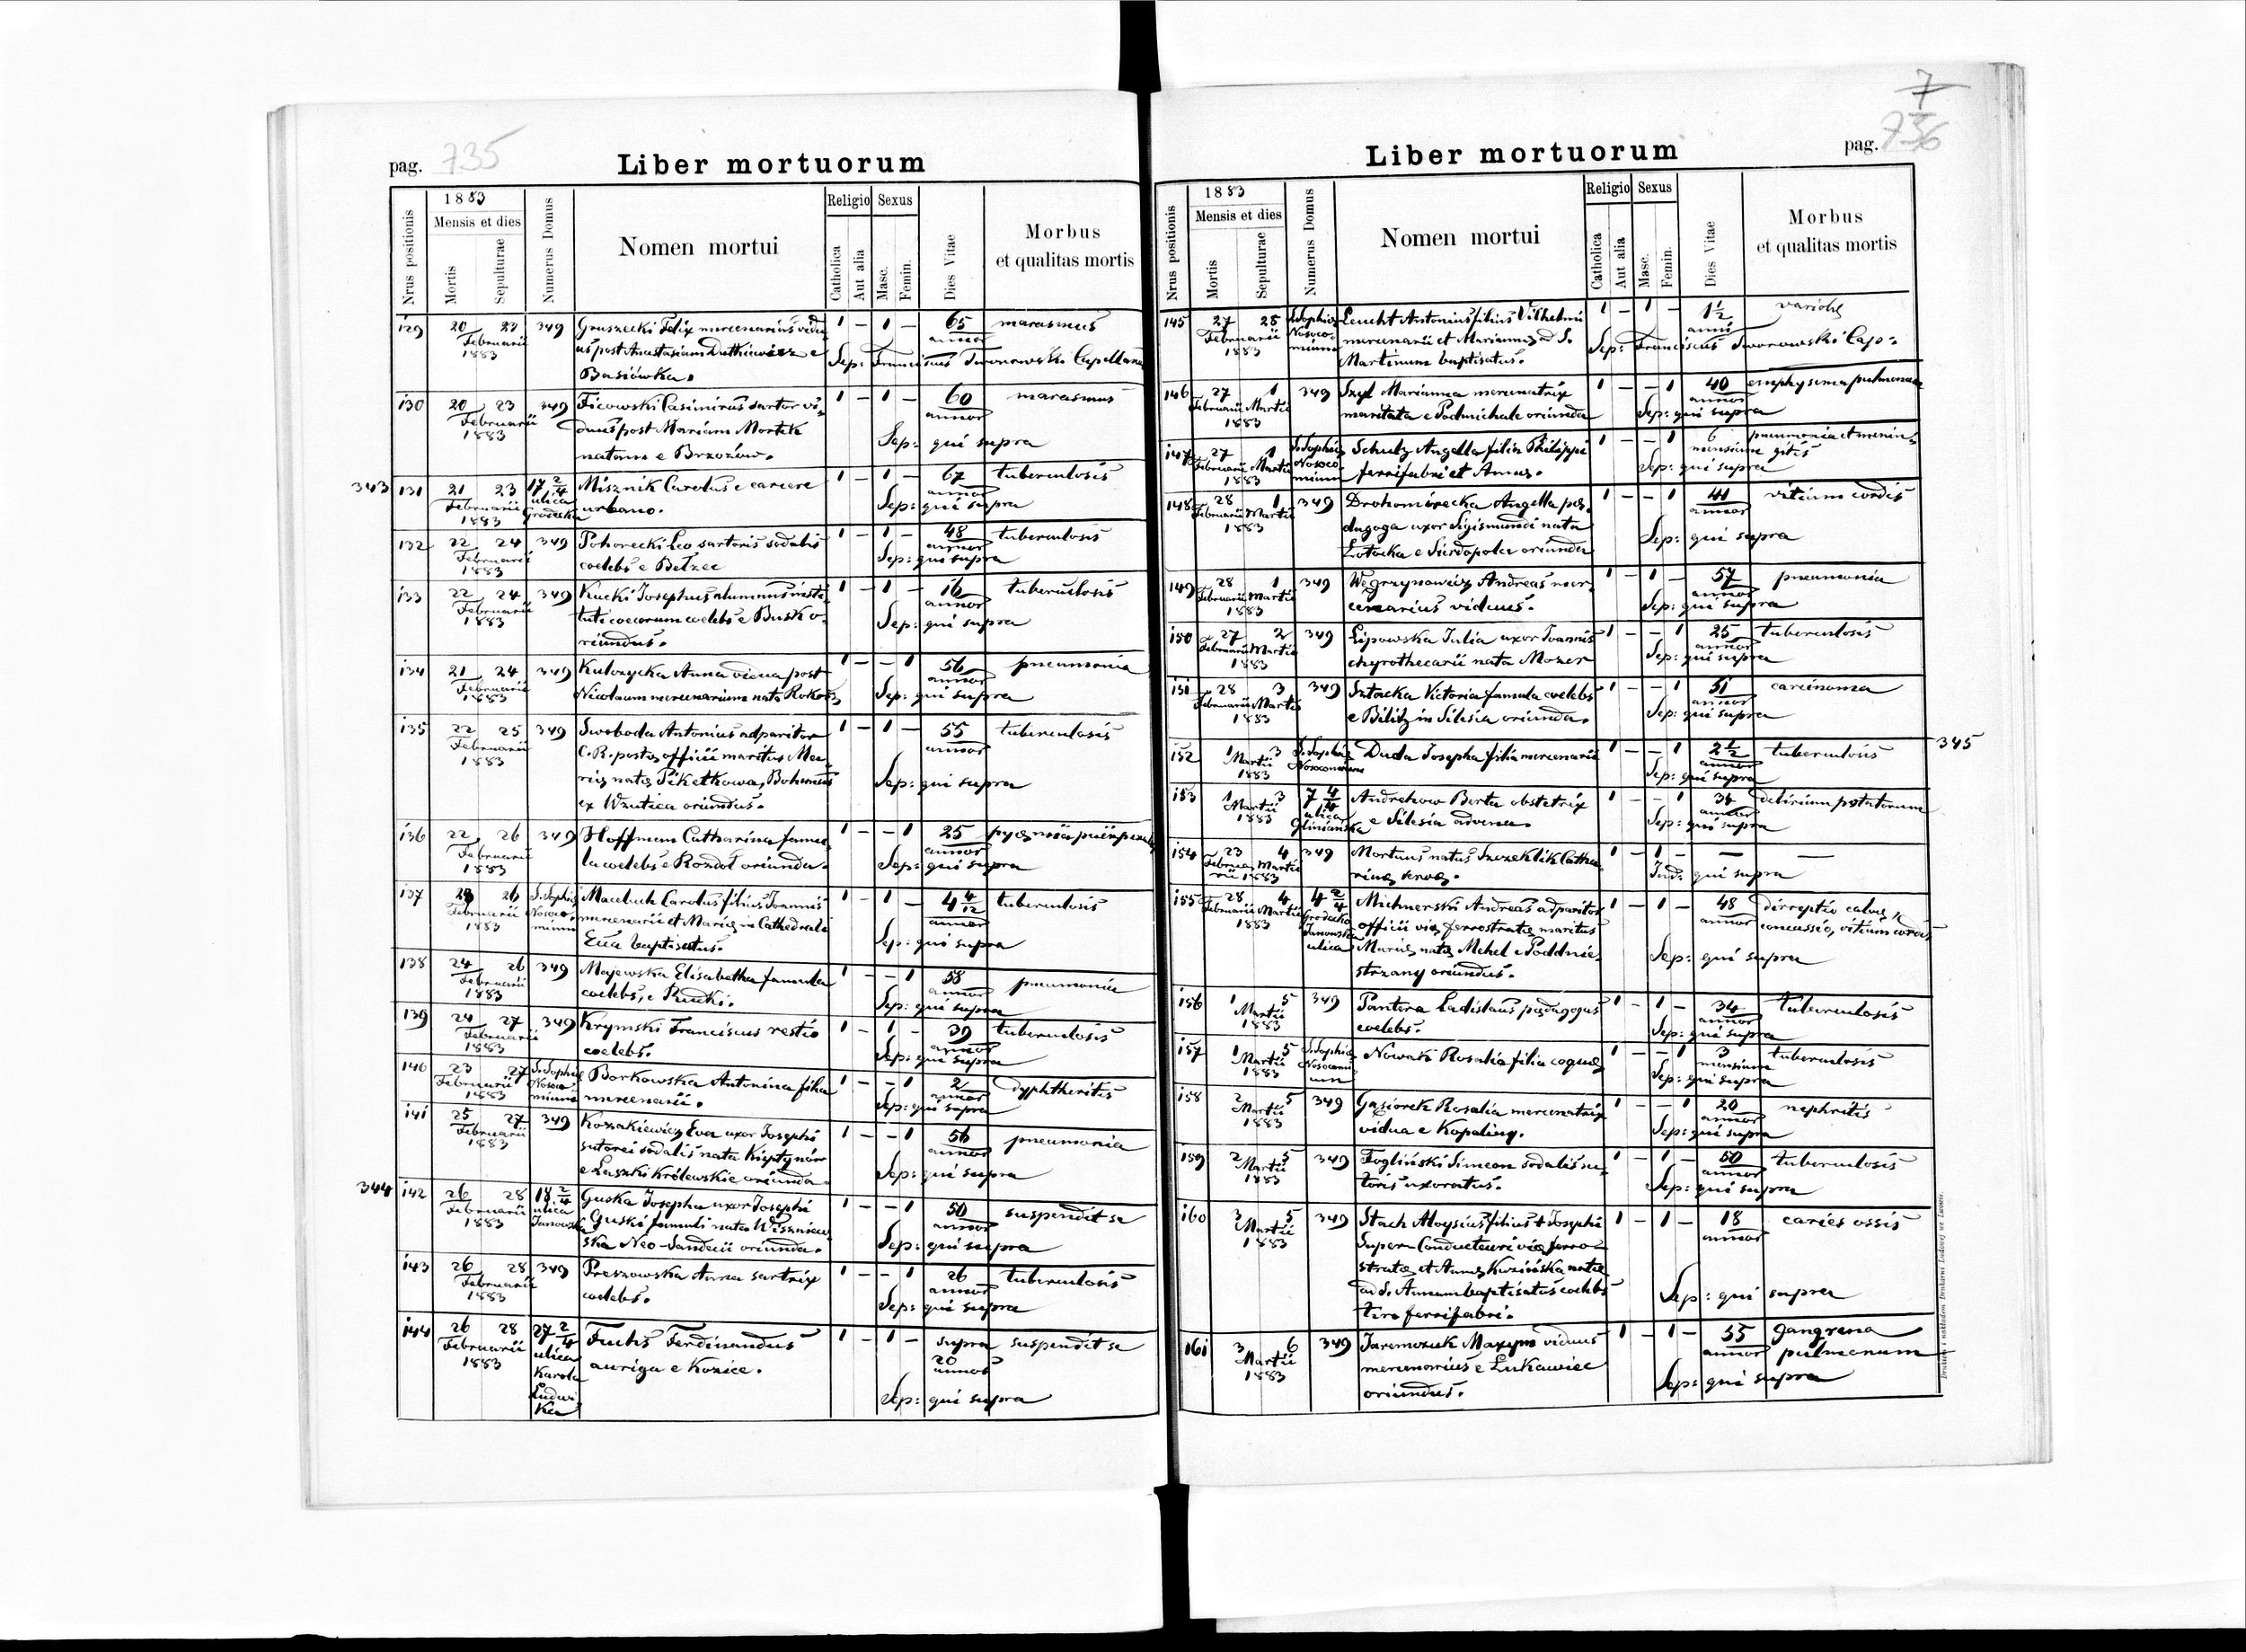 pag. 735
Liber mortuorum
Nrus positionis
1883
Mensis et dies
Mortis
Sepulturae
Numerus Domus
Nomen mortui
Religio
Catholica
Aut alia
Sexus
Masc.
Femin.
Dies Vitae
Morbus
et qualitas mortis
129 20 23 349 Gruszecki Felix mercenarius vidu 1 – 1 – 65 marasmus
Februarii annor
1883 us post Anastasiam
Sep: Franciscus Capellanus
Basiówka.
130 20 23 349 Ficowski Casimirus sartor vi 1 – 1 – 60 marasmus
Februarii annor
1883 duus post Mariam Mortek
Sep: qui supra
natam e Brzozów.
343 131 21 23 17 2/4 Misznik Carolus e carcere 1 – 1 – 67 tuberculosis
Februarii ulica Grodecka urbano. annor
1883 Sep: qui supra
132 22 24 349 Pohorecki Leo sartoris sodalis 1 – 1 – 48 tuberculosis
Februarii annor
1883 coelebs e Bełzec Sep: qui supra
133 22 24 349 Kucki Josephus alumnus insti 1 – 1 – 16 tuberculosis
Februarii annor
1883 tuti coecorum coelebs e Busk o
Sep: qui supra
riundus.
134 21 24 349 Anna vidua post 1 – – 1 56 pneumonia
Februarii annor
1883 Nicolaum mercenarium nata
Sep: qui supra
135 22 25 349 Swoboda Antonius adparitor 1 – 1 – 55 tuberculosis
Februarii annor
1883 C.R. postae officii maritus Ma
riae natae Piketkowa, Bohemus Sep: qui supra
ex oriundus.
136 22 26 349 Hoffmann Catharina famu 1 – – 1 25
Februarii annor
1883 la coelebs e Rozdół oriunda. Sep: qui supra
137 23 26 S. Sophiae Carolus filius Joannis 1 – 1 – 4 4/12 tuberculosis
Februarii Nosoco- mercenarii et Mariae in Cathedrali annor
1883 mium Ecca baptisatus. Sep: qui supra
138 24 26 349 Majewska Elisabetha famula 1 – – 1 58 pneumonia
Februarii annor
1883 coelebs, e Rudki. Sep: qui supra
139 24 27 349 Krymski Franciscus restio 1 – 1 – 39 tuberculosis
Februarii annor
1883 coelebs. Sep: qui supra
140 23 27 S. Sophiae Borkowska Antonina filia 1 – – 1 2 dyphtheritis
Februarii Nosoco- annor
1883 mium mercenarii. Sep: qui supra
141 25 27 349 Kozakiewicz Eva uxor Josephi 1 – – 1 56 pneumonia
Februarii annor
1883 sutorei sodalis nata
Sep: qui supra
e Laszki Królewskie oriunda
344 142 26 28 18 2/4 Guska Josepha uxor Josephi 1 – – 1 50 suspendit se
Februarii ulica Guski famuli nata Wiszniew annor
1883 Janowska ska Neo-Sandecii oriunda. Sep: qui supra
143 26 28 349 Preszowska Anna sartrix 1 – – 1 26 tuberculosis
Februarii annor
1883 coelebs. Sep: qui supra
144 26 28 27 2/4 Fuchs Ferdinandus 1 – 1 – supra suspendit se
Februarii ulica auriga e Kozice. 20
1883 Karola annos
Ludwi
ka Sep: qui supra
7
736
Liber mortuorum
pag.
Nrus positionis
1883
Mensis et dies
Mortis
Sepulturae
Numerus Domus
Nomen mortui
Religio
Catholica
Aut alia
Sexus
Masc.
Femin.
Dies Vitae
Morbus
et qualitas mortis
145 27 28 S. Sophiae Leucht Antonius filius Vilhelmi 1 – 1 – 1 1/2 variolae
Februarii Nosoco- mercenarii et Mariannae ad S. anni
1883 mium Martinum baptisatus.
Sep: Franciscus Cap:
146 27 1 349 Szyl Marianna mercenatrix 1 – – 1 40 emphysema pulmonum
Februarii Martii annor
1883 maritata e Podmichale oriunda Sep: qui supra
147 27 1 S. Sophiae Schulz Angella filia Philippi 1 – – 1 6 pneumonia et menin-
Februarii Martii Nosoco- mensium gitis
1883 mium ferrifabri et Annae. Sep: qui supra
148 28 1 349 Drohomirecka Angella pae- 1 – – 1 41 vitium cordis
Februarii Martii annor
1883 dagoga uxor Sigismundi nata
Łotocka e oriunda Sep: qui supra
149 28 1 349 Węgrzynowicz Andreas mer- 1 – 1 – 57 pneumonia
Februarii Martii annor
1883 cenarius viduus. Sep: qui supra
150 27 2 349 Lipowska Julia uxor Joannis 1 – – 1 25 tuberculosis
Februarii Martii annor
1883 chyrothecarii nata Mozer Sep: qui supra
151 28 3 349 Sztacka Victoria famula coelebs 1 – – 1 51 carcinoma
Februarii Martii annor
1883 e Bilitz in Silesia oriunda. Sep: qui supra
152 1 3 S. Sophiae Duda Josepha filia mercenarii 1 – – 1 2 1/2 tuberculosis 345
Martii Nosocomium annor
1883 Sep: qui supra
153 1 3 7 4/4 Andrehow Berta obstetrix 1 – – 1 34 delirium potatorum
Martii ulica annor
1883 Gliniańska e Silesia advena. Sep: qui supra
154 23 4 349 Mortuus natus Szczeklik Catha 1 – 1 – — —
Februa Martii
rii 1883 rinae Ind. qui supra
155 28 4 4 2/4 Michnerski Andreas adparitor 1 – 1 – 48 calvae,
Februarii Martii Grodecko officii viae ferrostratae maritus annor concussio, vitium cordis
1883 Janowska Mariae natae Mehel e Poddnie-
ulica strzany oriundus. Sep: qui supra
156 1 5 349 Pantera Ladislaus paedagogus 1 – 1 – 34 tuberculosis
Martii annor
1883 coelebs. Sep: qui supra
157 1 5 S. Sophiae Nowak Rosalia filia coquae 1 – – 1 3 tuberculosis
Martii Nosocomi mensium
1883 um Sep: qui supra
158 2 5 349 Gąsiorek Rosalia mercenatrix 1 – – 1 20 nephritis
Martii annor
1883 vidua e Kopaliny. Sep: qui supra
159 2 5 349 Fogliński Simeon sodalis su- 1 – 1 – 50 tuberculosis
Martii annor
1883 toris uxoratus. Sep: qui supra
160 3 5 349 Stach Aloysius filius + Josephi 1 – 1 – 18 caries ossis
Martii annor
1883 Super-Conducteuri viae ferro-
stratae et Annae natae
ad S. Annam baptisatus coelebs Sep: qui supra
tiro ferrifabri.
161 3 6 349 Jaremczuk Maxym viduus 1 – 1 – 55 gangrena
Martii annor pulmonum
1883 mercenarius e Lukawiec
oriundus. Sep: qui supra
Drukiem i nakładem Drukarni Ludowej we Lwowie.